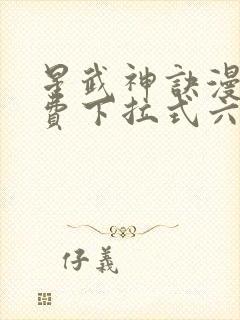 星武神訣漫
費下拉式六
仔義